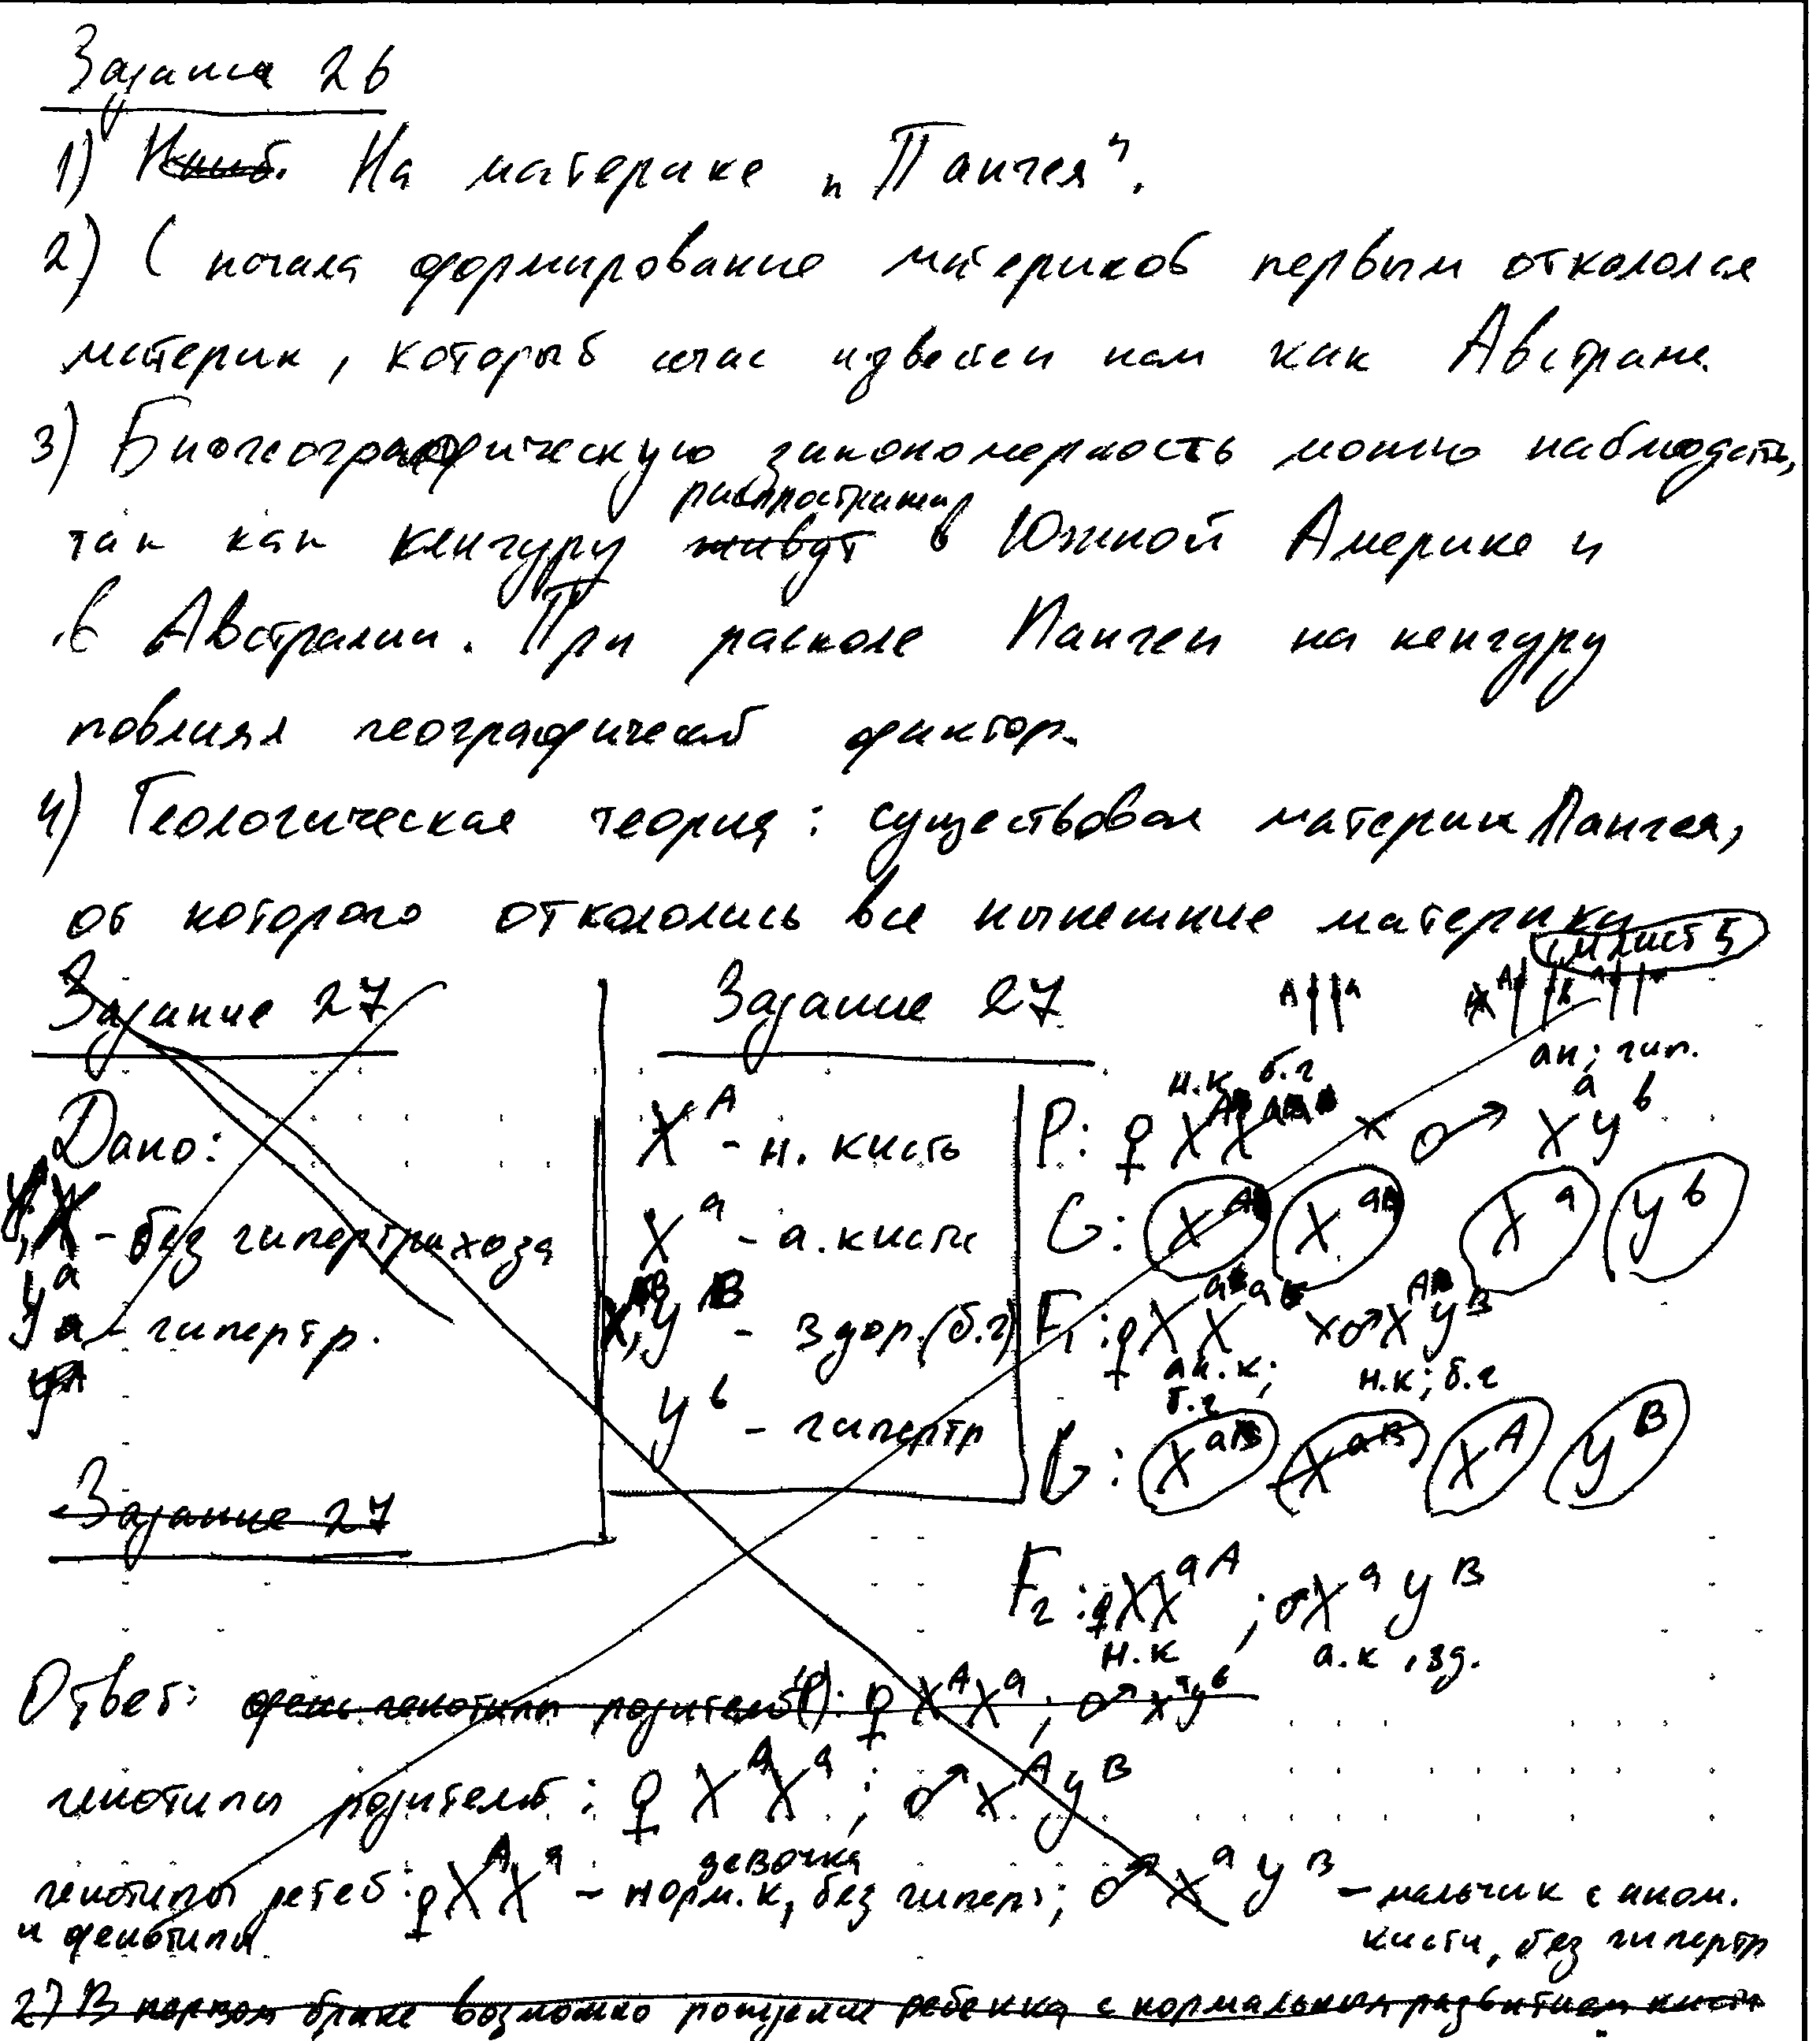 Задание 26
1) На материке „Пангея".
2) С начала формирование материков первым откололся
материк, который счас известен нам как Австралия.
3) Биогеографическую закономерность можно наблюдать,
распространены
так как кенгуру живут в Южной Америке и
в Австралии. При расколе Пангеи на кенгуру
повлиял географический фактор.
4) Геологическая теория: существовал материк Пангея,
от которого откололись все нынешние материки
см лист 5
Задание 27
Дано:
- без гипертрихоза
- гипертр.
Задание 27
Задание 27
X^A - н. кисть
X^a - а. кисть
y^B - здор. (б.г)
y^b - гипертр
A a
ан; гип.
н.к б.г
P: ♀ X^A X^a × ♂ X^a y^b
G: X^A X^a X^a y^b
F1: ♀ X^a X^a × ♂ X^A y^B
ан. к; б.г н.к; б.г
G: X^aB X^aB X^A y^B
F2: ♀ XX^aA ; ♂ X^a y^B
н.к а.к , зд.
Ответ: генотипы родителей (P): ♀ X^A X^a ; ♂ X^a y^b
генотипы родителей : ♀ X^a X^a ; ♂ X^A y^B
девочка
генотипы детей : ♀ X^A X^a - норм. к, без гиперт; ♂ X^a y^B - мальчик с аном.
и фенотипы кисти, без гипертр
2) В первом браке возможно рождение ребенка с нормальным развитием кисти